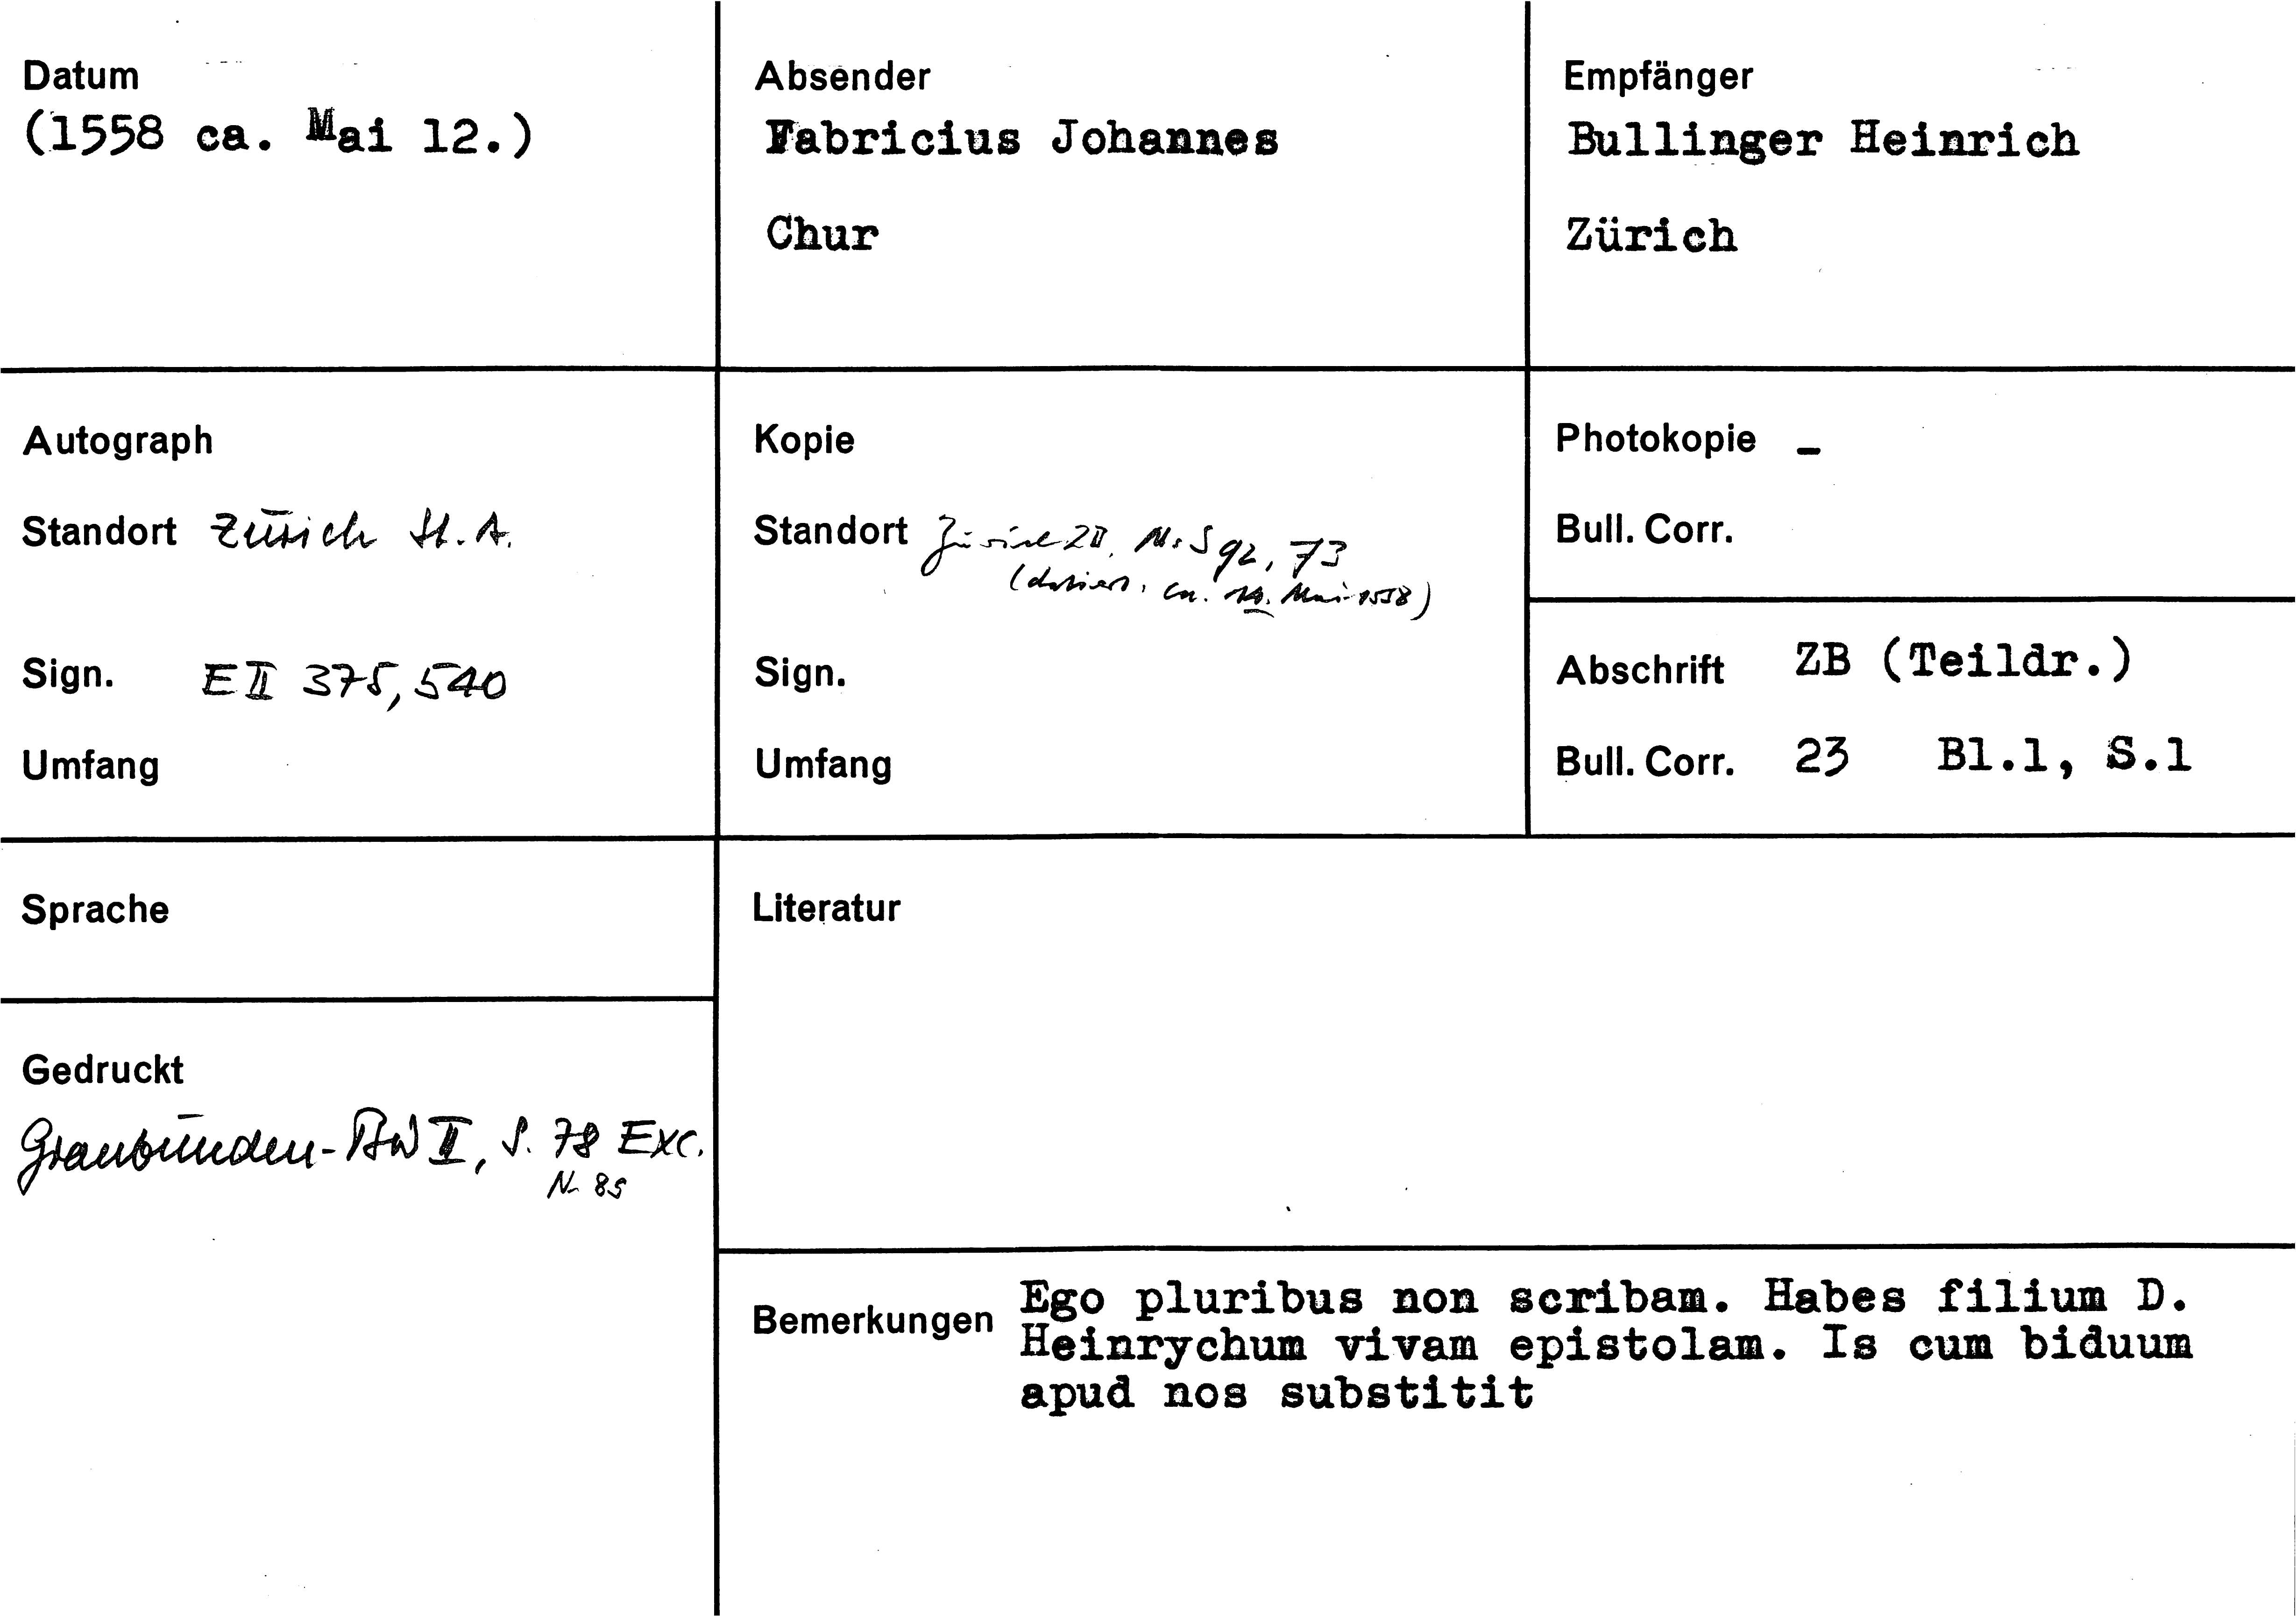 Datum
(1558 ca. Mai 12.)
Absender
Fabricius Johannes
Chur
Empfänger
Bullinger Heinrich
Zürich
Autograph
Standort Zürich St. A.
Sign. E II 375, 540
Umfang
Kopie
Standort Zürich ZB, Ms S 92, 73
(datiert, ca. Mai 1558)
Sign.
Umfang
Photokopie -
Bull. Corr.
Abschrift ZB (Teildr.)
Bull. Corr. 23 Bl.1, S.1
Sprache
Literatur
Gedruckt
Graubünden-BW II, S. 78 Exc.
N. 85
Bemerkungen Ego pluribus non scribam. Habes filium D.
Heinrychum vivam epistolam. Is cum biduum
apud nos substitit